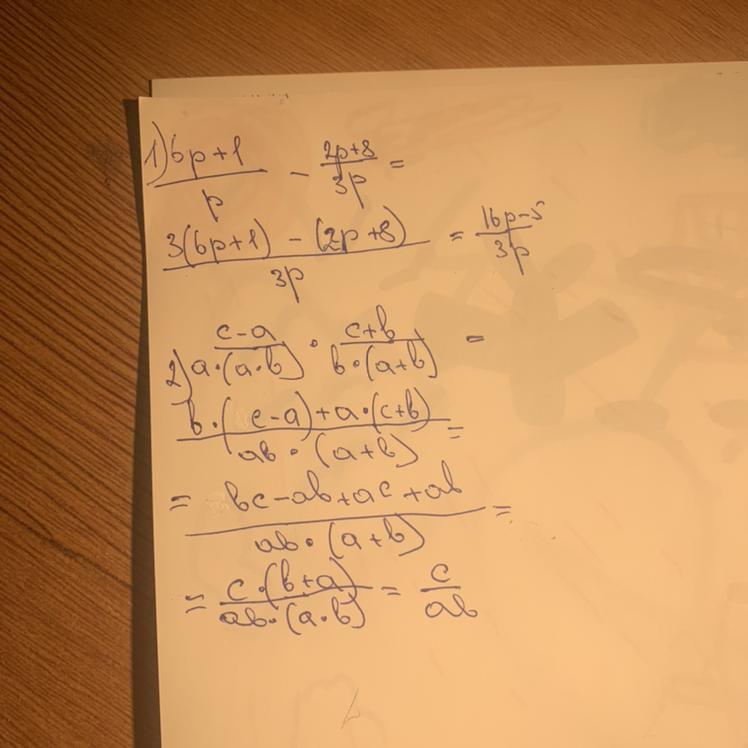 1) (6p+1)/p - (2p+8)/3p =
(3(6p+1) - (2p+8))/3p = (16p-5)/3p
2) (c-a)/(a·(a·b)) · (c+b)/(b·(a+b)) =
(b·(c-a)+a·(c+b))/(ab·(a+b)) =
= (bc-ab+ac+ab)/(ab·(a+b)) =
= (c·(b+a))/(ab·(a·b)) = c/ab